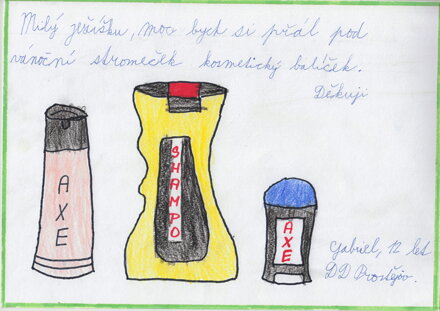 Milý ježíšku, moc bych si přál pod
vánoční stromeček kosmetický balíček.
Děkuji
AXE
SHAMPO
AXE
Gabriel, 12 let
DD Prostějov.